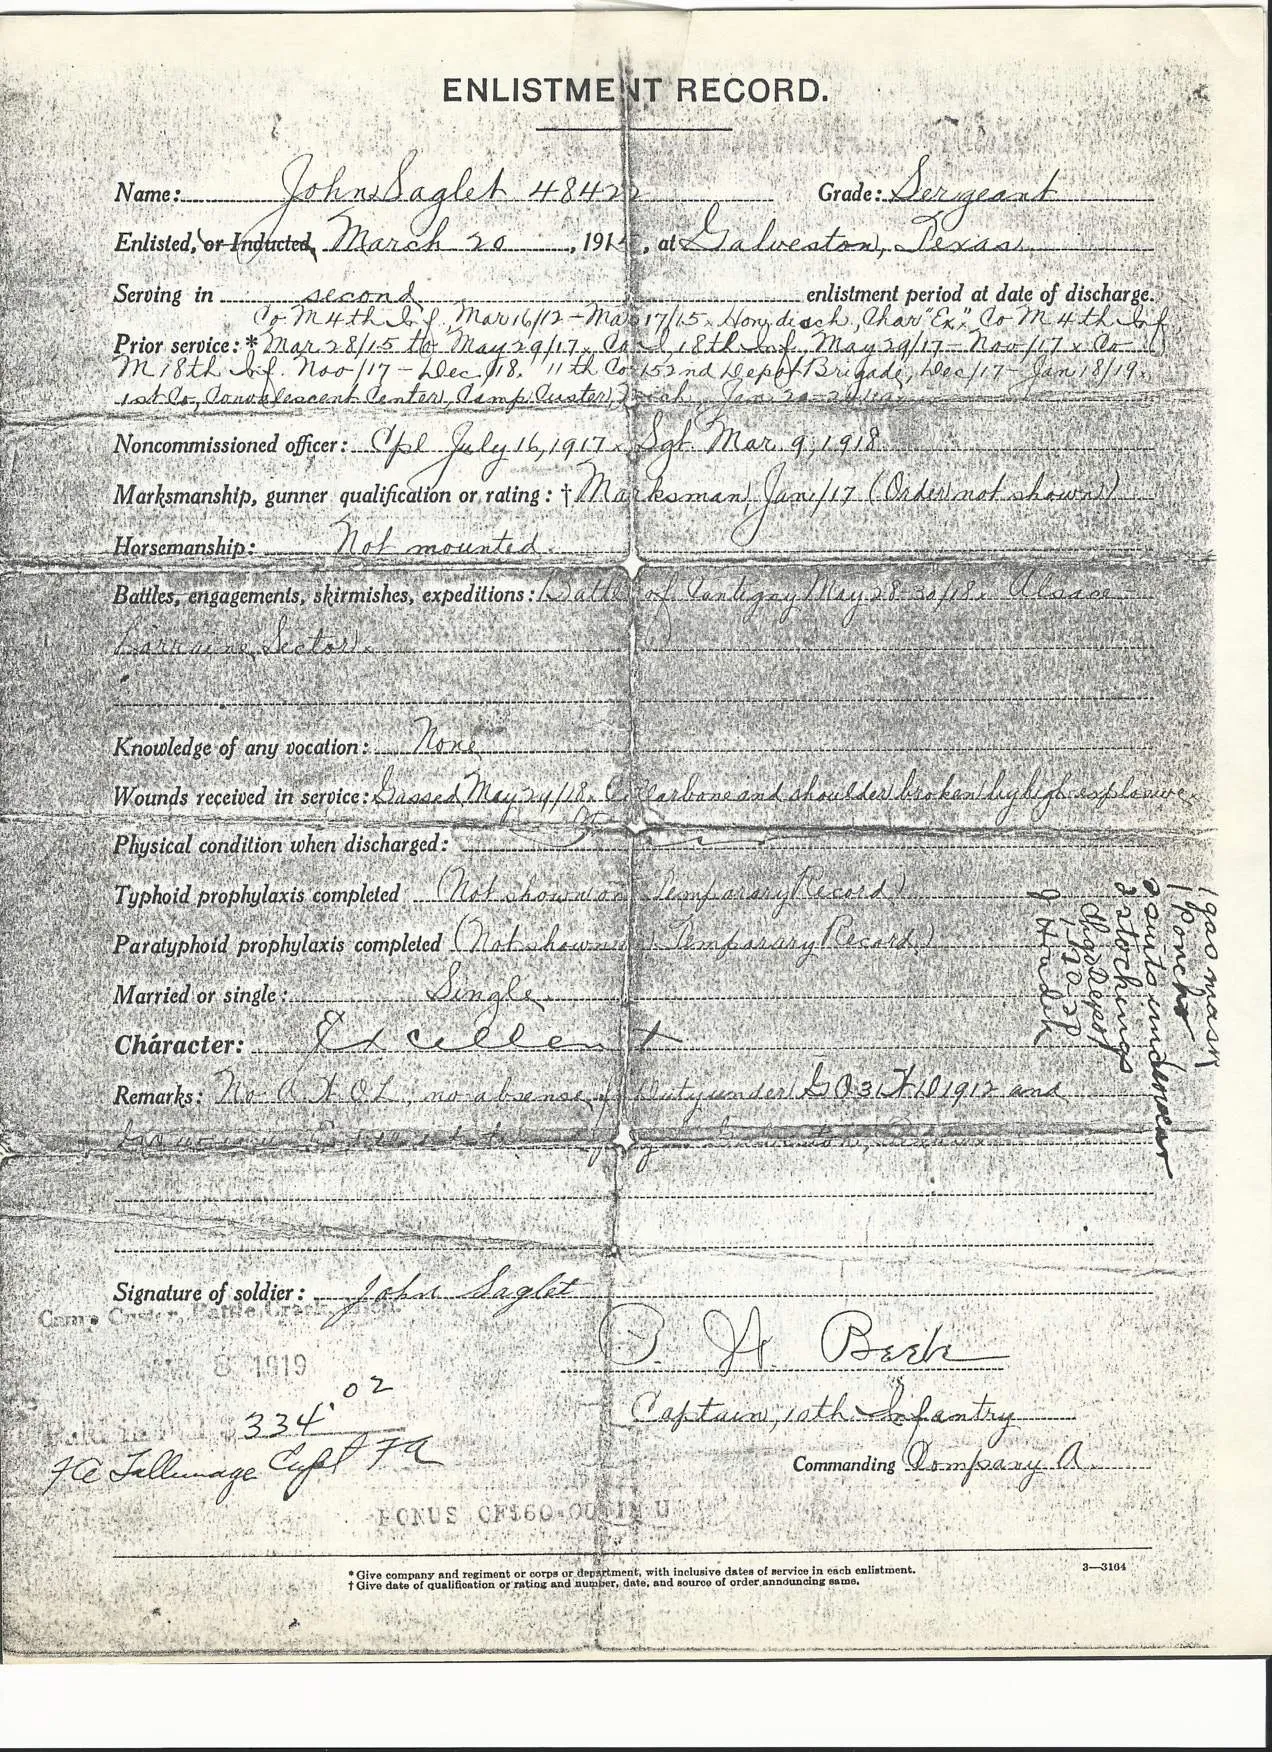 ENLISTMENT RECORD.
Name: John Saglet 48422 Grade: Sergeant
Enlisted, or Inducted, March 20, 1915, at Galveston, Texas.
Serving in second enlistment period at date of discharge.
Co M 4th Inf, Mar 16/12 - Mar 17/15. Hon. disch, Char "Ex." Co M 4th Inf
Prior service: * Mar 28/15 to May 29/17. Co 18th Inf. May 29/17 - Nov/17. Co
M 18th Inf. Nov/17 - Dec /18. 11th Co 152nd Depot Brigade, Dec/17 - Jan 18/19.
1st Co, Convalescent Center, Camp Custer, Mich, Jan 20-
Noncommissioned officer: Cpl July 16, 1917. Sgt Mar. 9, 1918
Marksmanship, gunner qualification or rating: † Marksman, Jan/17 (Order not shown)
Horsemanship: Not mounted.
Battles, engagements, skirmishes, expeditions: Battle of Cantigny May 28-30/18. Alsace-
Lorraine Sector.
Knowledge of any vocation: None
Wounds received in service: Gassed May 24/18. Collarbone and shoulder broken by high explosive.
Physical condition when discharged:
Typhoid prophylaxis completed (Not shown on Temporary Record)
Paratyphoid prophylaxis completed (Not shown on Temporary Record)
Married or single: Single.
Character: Excellent
Remarks: No A.W.O.L., no absence fr duty under G O 31 W D 1912 and
Signature of soldier: John Saglet
Camp Custer, Battle Creek, Mich.
8 1919
P. H.
334.02
Captain, 10th Infantry
Capt F A
Commanding Company A.
BONUS OF $60.00
* Give company and regiment or corps or department, with inclusive dates of service in each enlistment.
3—3164
† Give date of qualification or rating and number, date, and source of order announcing same.
1 gas mask
1 poncho
2 suits underwear
2 stockings